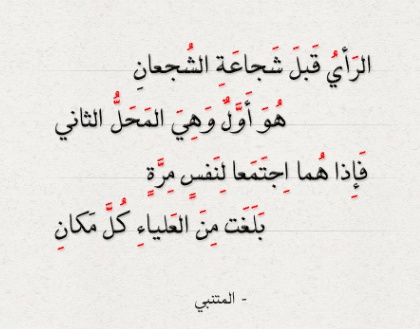 الرَأيُ قَبلَ شَجاعَةِ الشُجعانِ
هُوَ أَوَّلٌ وَهِيَ المَحَلُّ الثاني
فَإِذا هُما اِجتَمَعا لِنَفسٍ مِرَّةٍ
بَلَغَت مِنَ العَلياءِ كُلَّ مَكانِ
- المتنبي